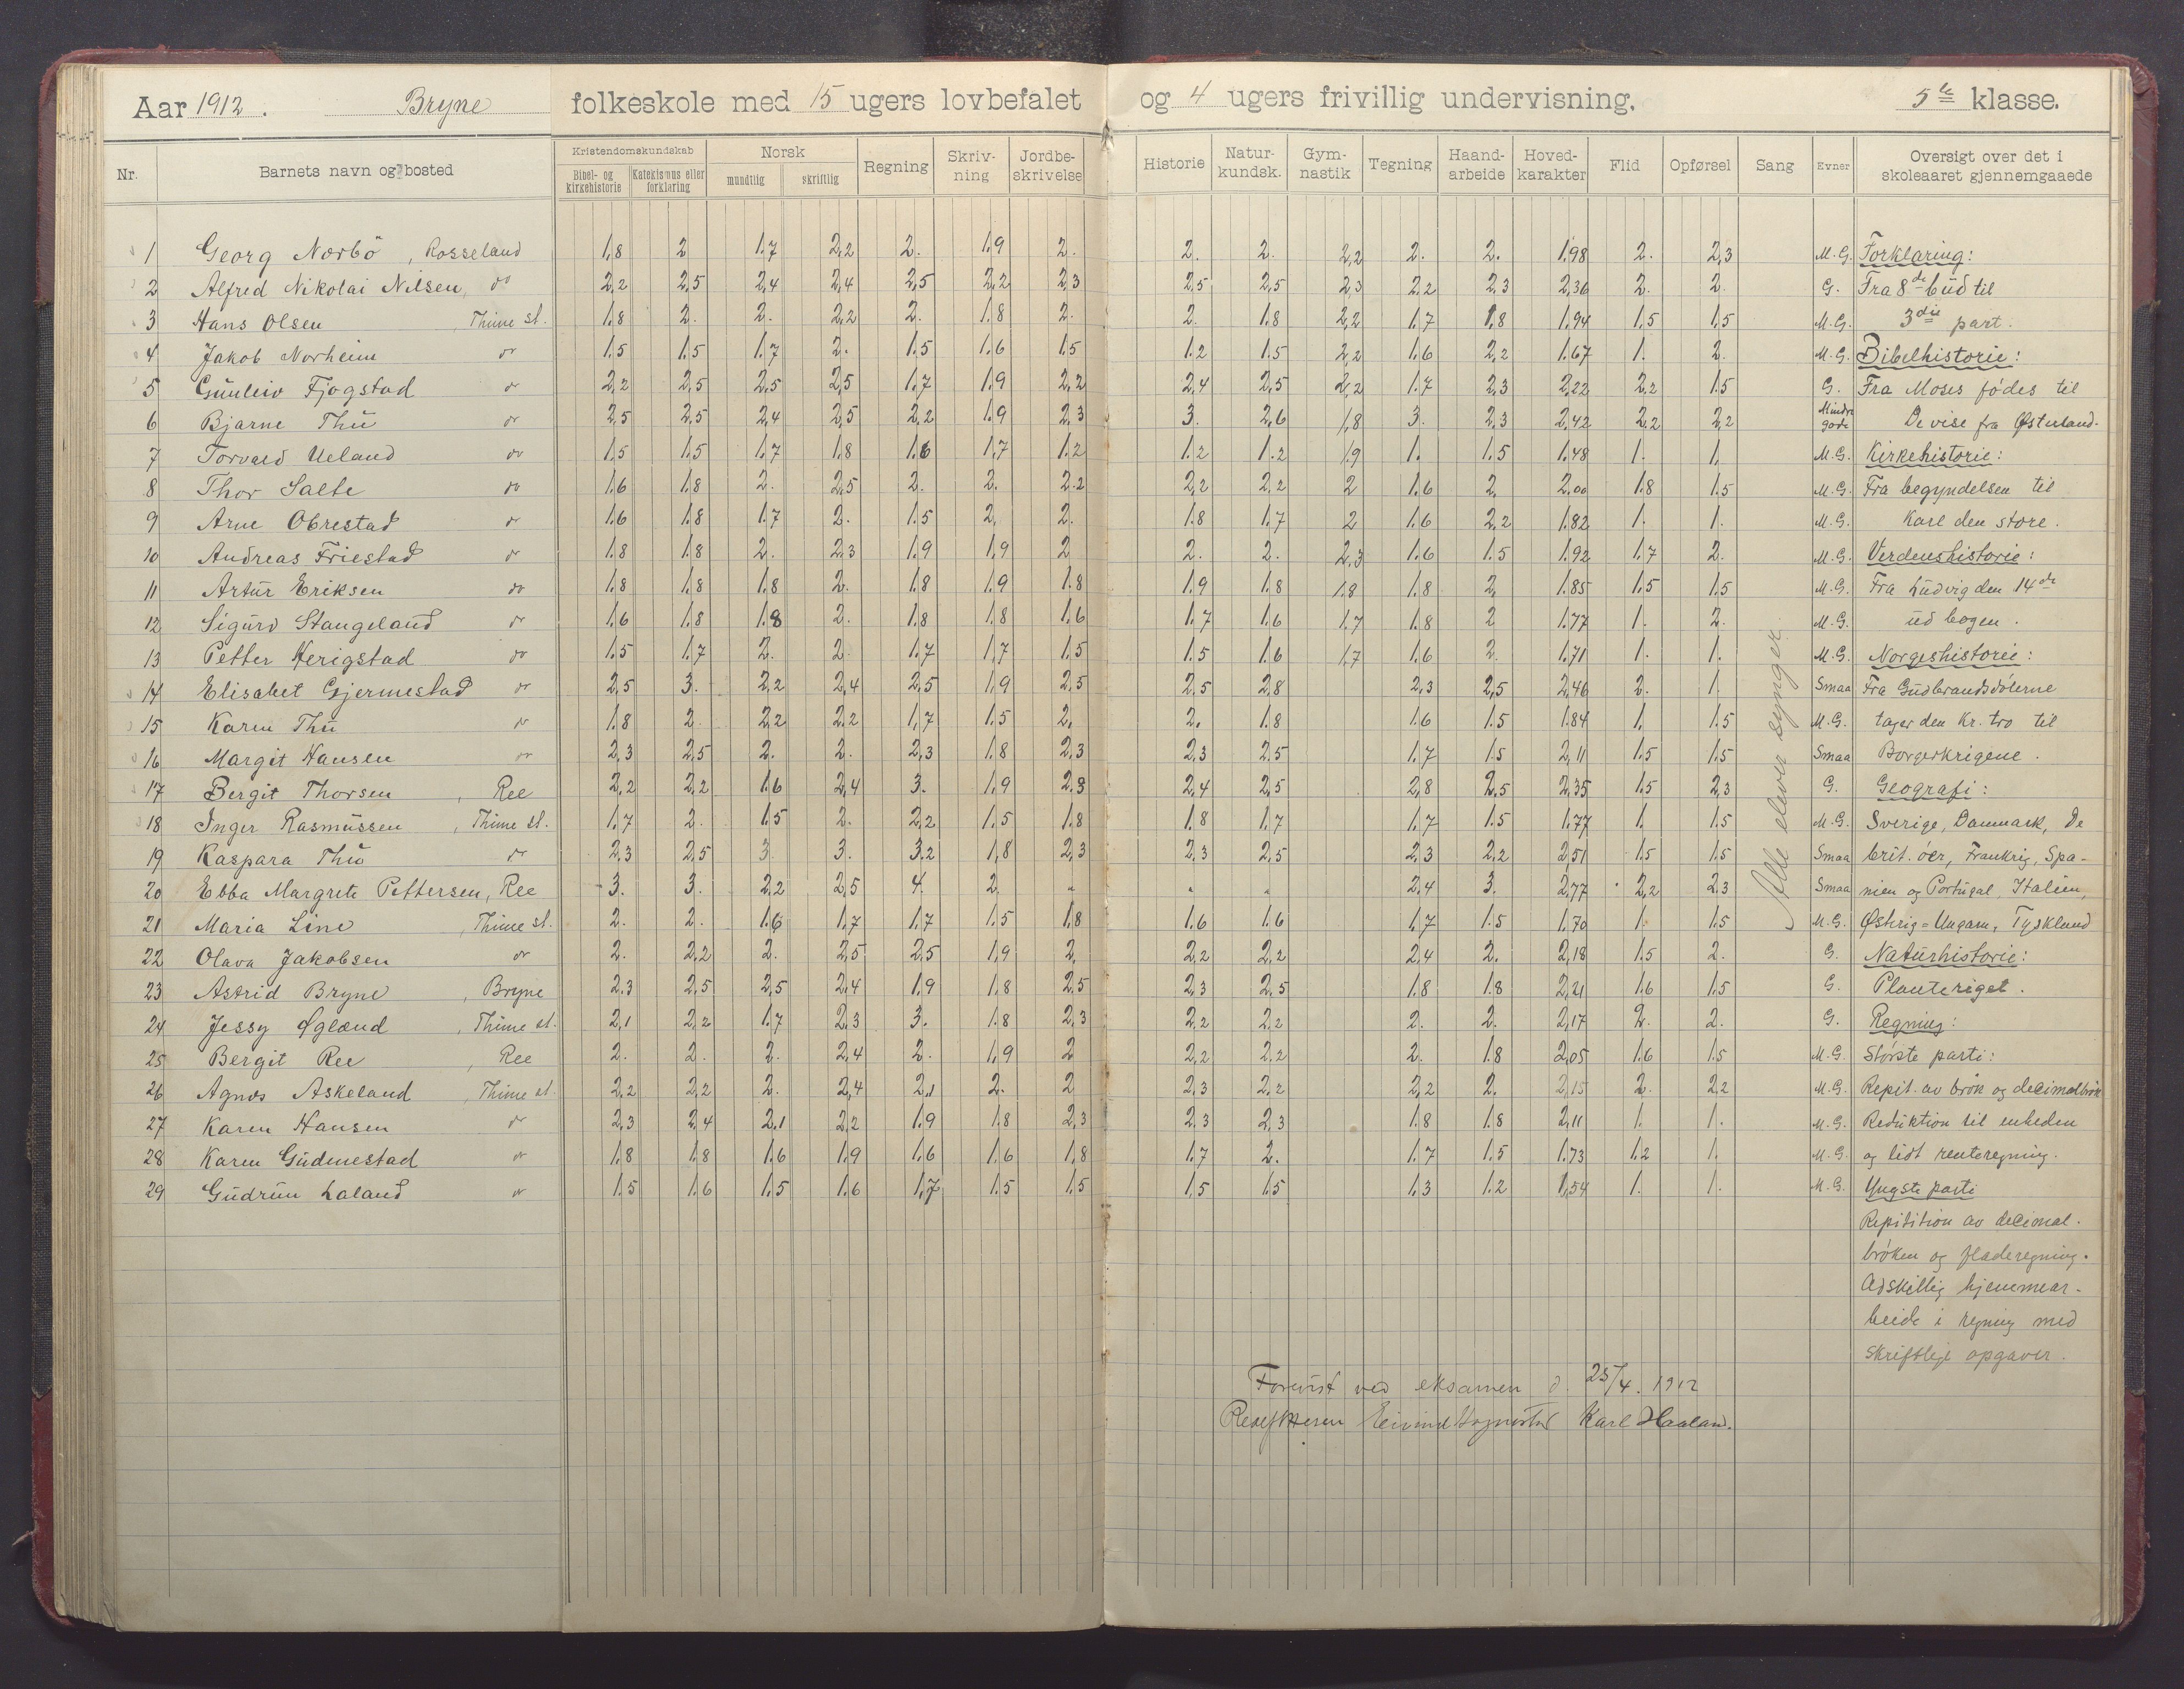 Aar 1912. Bryne folkeskole med 15 ugers lovbefalet og 4 ugers frivillig undervisning. 5te klasse.
Nr. Barnets navn og bosted Kristendomskundskab Bibel- og kirkehistorie Katekismus eller forklaring Norsk mundtlig skriftlig Regning Skriv-ning Jordbe-skrivelse Historie Natur-kundsk. Gym-nastik Tegning Haand-arbeide Hoved-karakter Flid Opførsel Sang Evner Oversigt over det i skoleaaret gjennemgaaede
1 Georg Norbö, Rosseland 1.8 2 1.7 2,2 2. 1.9 2. 2. 2. 2,2 2. 2. 1.98 2. 2,3 M.G. Forklaring:
2 Alfred Nikolai Nilsen, do 2,2 2,5 2,4 2,4 2,5 2,2 2,3 2,5 2,5 2,3 2,2 2,3 2,36 2. 2. G. Fra 8de bud til
3 Hans Olsen, Thime st. 1.8 2. 2. 2,2 2. 1.8 2. 2. 1.8 2,2 1.7 1,8 1.94 1,5 1,5 M.G. 3die part.
4 Jakob Norheim do 1.5 1.5 1.7 2. 1.5 1.6 1.5 1.2 1.5 2,2 1.6 2,2 1.67 1. 2. M.G. Bibelhistorie:
5 Gunleiv Fjogstad do 2,2 2,5 2,5 2,5 1.7 1.9 2,2 2,4 2,5 2,2 1.7 2,3 2,22 2,2 1.5 G. Fra Moses födes til
6 Bjarne Thu do 2,5 2,5 2,4 2,5 2,2 1.9 2,3 3. 2,6 1,8 3. 2,3 2,42 2,2 2,2 Mindre gode De vise fra Østerland.
7 Torvald Ueland do 1.5 1.5 1.7 1.8 1.6 1,7 1.2 1.2 1.2 1.9 1. 1.5 1.48 1. 1. M.G. Kirkehistorie:
8 Thor Salte do 1.6 1.8 2. 2,5 2. 2. 2.2 2,2 2,2 2 1.6 2. 2.00 1.8 1.5 M.G. Fra begyndelsen til
9 Arne Obrestad do 1.6 1.8 1.7 2. 1.5 2. 2. 1.8 1.7 2 1.6 2,2 1.82 1. 1. M.G. Karl den store.
10 Andreas Friestad do 1.8 1.8 2. 2,3 1.9 1,9 2 2. 2. 2,3 1.6 1.5 1.92 1.7 2. M.G. Verdenshistorie:
11 Artur Eriksen do 1.8 1.8 1.8 2. 1.8 1.9 1.8 1.9 1.8 1.8 1.8 2, 1.85 1.5 1.5 M.G. Fra Ludvig den 14de
12 Sigurd Stangeland do 1.6 1.8 1.8 2. 1.8 1.8 1.6 1.7 1.6 1.7 1.8 2 1.77 1. 2. M.G. ud bogen.
13 Petter Herigstad do 1.5 1.7 2. 2. 1.7 1,7 1.5 1.5 1.6 1,7 1.6 2. 1.71 1. 1. M.G. Norgeshistorie:
14 Elisabet Gjermestad do 2,5 3. 2,2 2,4 2,5 1.9 2,5 2,5 2,8 2,3 2,5 2,46 2. 1. Smaa Fra Gudbrandsdölerne
15 Karen Thu do 1.8 2. 2,2 2,2 1,7 1.5 2. 2. 1.8 1.6 1.5 1.84 1. 1.5 M.G. tager den kr. tro til
16 Margit Hansen do 2,3 2,5 2. 2. 2,3 1.8 2,3 2,3 2,5 1.7 1.5 2,11 1.5 1.5 Smaa Borgerkrigene.
17 Bergit Thorsen, Ree 2,2 2,2 1.6 2,4 3. 1.9 2.3 2,4 2,5 2,8 2.5 2,35 1.5 2,3 G. Geografi:
18 Inger Rasmussen, Thime st. 1.7 2. 1.5 2. 2,2 1.5 1.8 1.8 1.7 1.7 1.5 1.77 1. 1.5 M.G. Sverige, Danmark, de
19 Kaspara Thu do 2,3 2,5 3. 3. 3.2 1,8 2,3 2,3 2,5 2,3 2,2 2,51 1.5 1.5 Smaa brit. öer, Frankrig, Spa-
20 Ebba Margrete Pettersen, Ree 3. 3. 2,2 2,5 4. 2. " " " 2,4 3. 2,77 2,2 2,3 Smaa nien og Portugal, Italien,
21 Maria Line, Thime st. 2. 2. 1.6 1,7 1.7 1.5 1,8 1.6 1.6 1.7 1.5 1.70 1. 1.5 M.G. Østrig=Ungarn, Tyskland
22 Olava Jakobsen do 2. 2,2 2. 2,5 2,5 1,9 2, 2,2 2,2 2,4 2. 2,18 1.5 2. G. Naturhistorie:
23 Astrid Bryne, Bryne 2.3 2,5 2,5 2,4 1.9 1.8 2,5 2,3 2,5 1.8 1.8 2,21 1.6 1.5 G. Planteriget.
24 Jessy Øglænd, Thime st. 2,1 2,2 1.7 2,3 3. 1.8 2,3 2,2 2,2 2. 2. 2,17 2. 2. G. Regning:
25 Bergit Ree, Ree 2. 2. 2. 2,4 2. 1,9 2 2,2 2,2 2. 1.8 2,05 1.6 1.5 M.G. Störste parti:
26 Agnes Askeland, Thime st. 2,2 2,2 2. 2,4 2,1 2. 2 2,3 2,2 2,2 2. 2,15 2. 2,2 M.G. Repit. av brök og decimalbrök
27 Karen Hansen do 2,3 2,4 2,1 2,2 1.9 1.8 2,3 2.3 2,3 1.8 1.8 2,11 1. 1. M.G. Reduktion til enheden
28 Karen Gudmestad do 1.8 1.8 1.6 1.9 1.6 1.6 1,8 1.7 2. 1.7 1.5 1.73 1.2 1. M.G. og lidt renteregning.
29 Gudrun Laland do 1.5 1.6 1.5 1.6 1,7 1.5 1.5 1,5 1.5 1.3 1.2 1,54 1. 1. M.G. Yngste parti
Alle elever synger.
Repitition av decimal-
bröken og fladeregning.
Adskillig hjemmear-
beide i regning med
skriftlige opgaver.
Forevist ved eksamen d. 25/4. 1912
Eivind Karl Haaland.